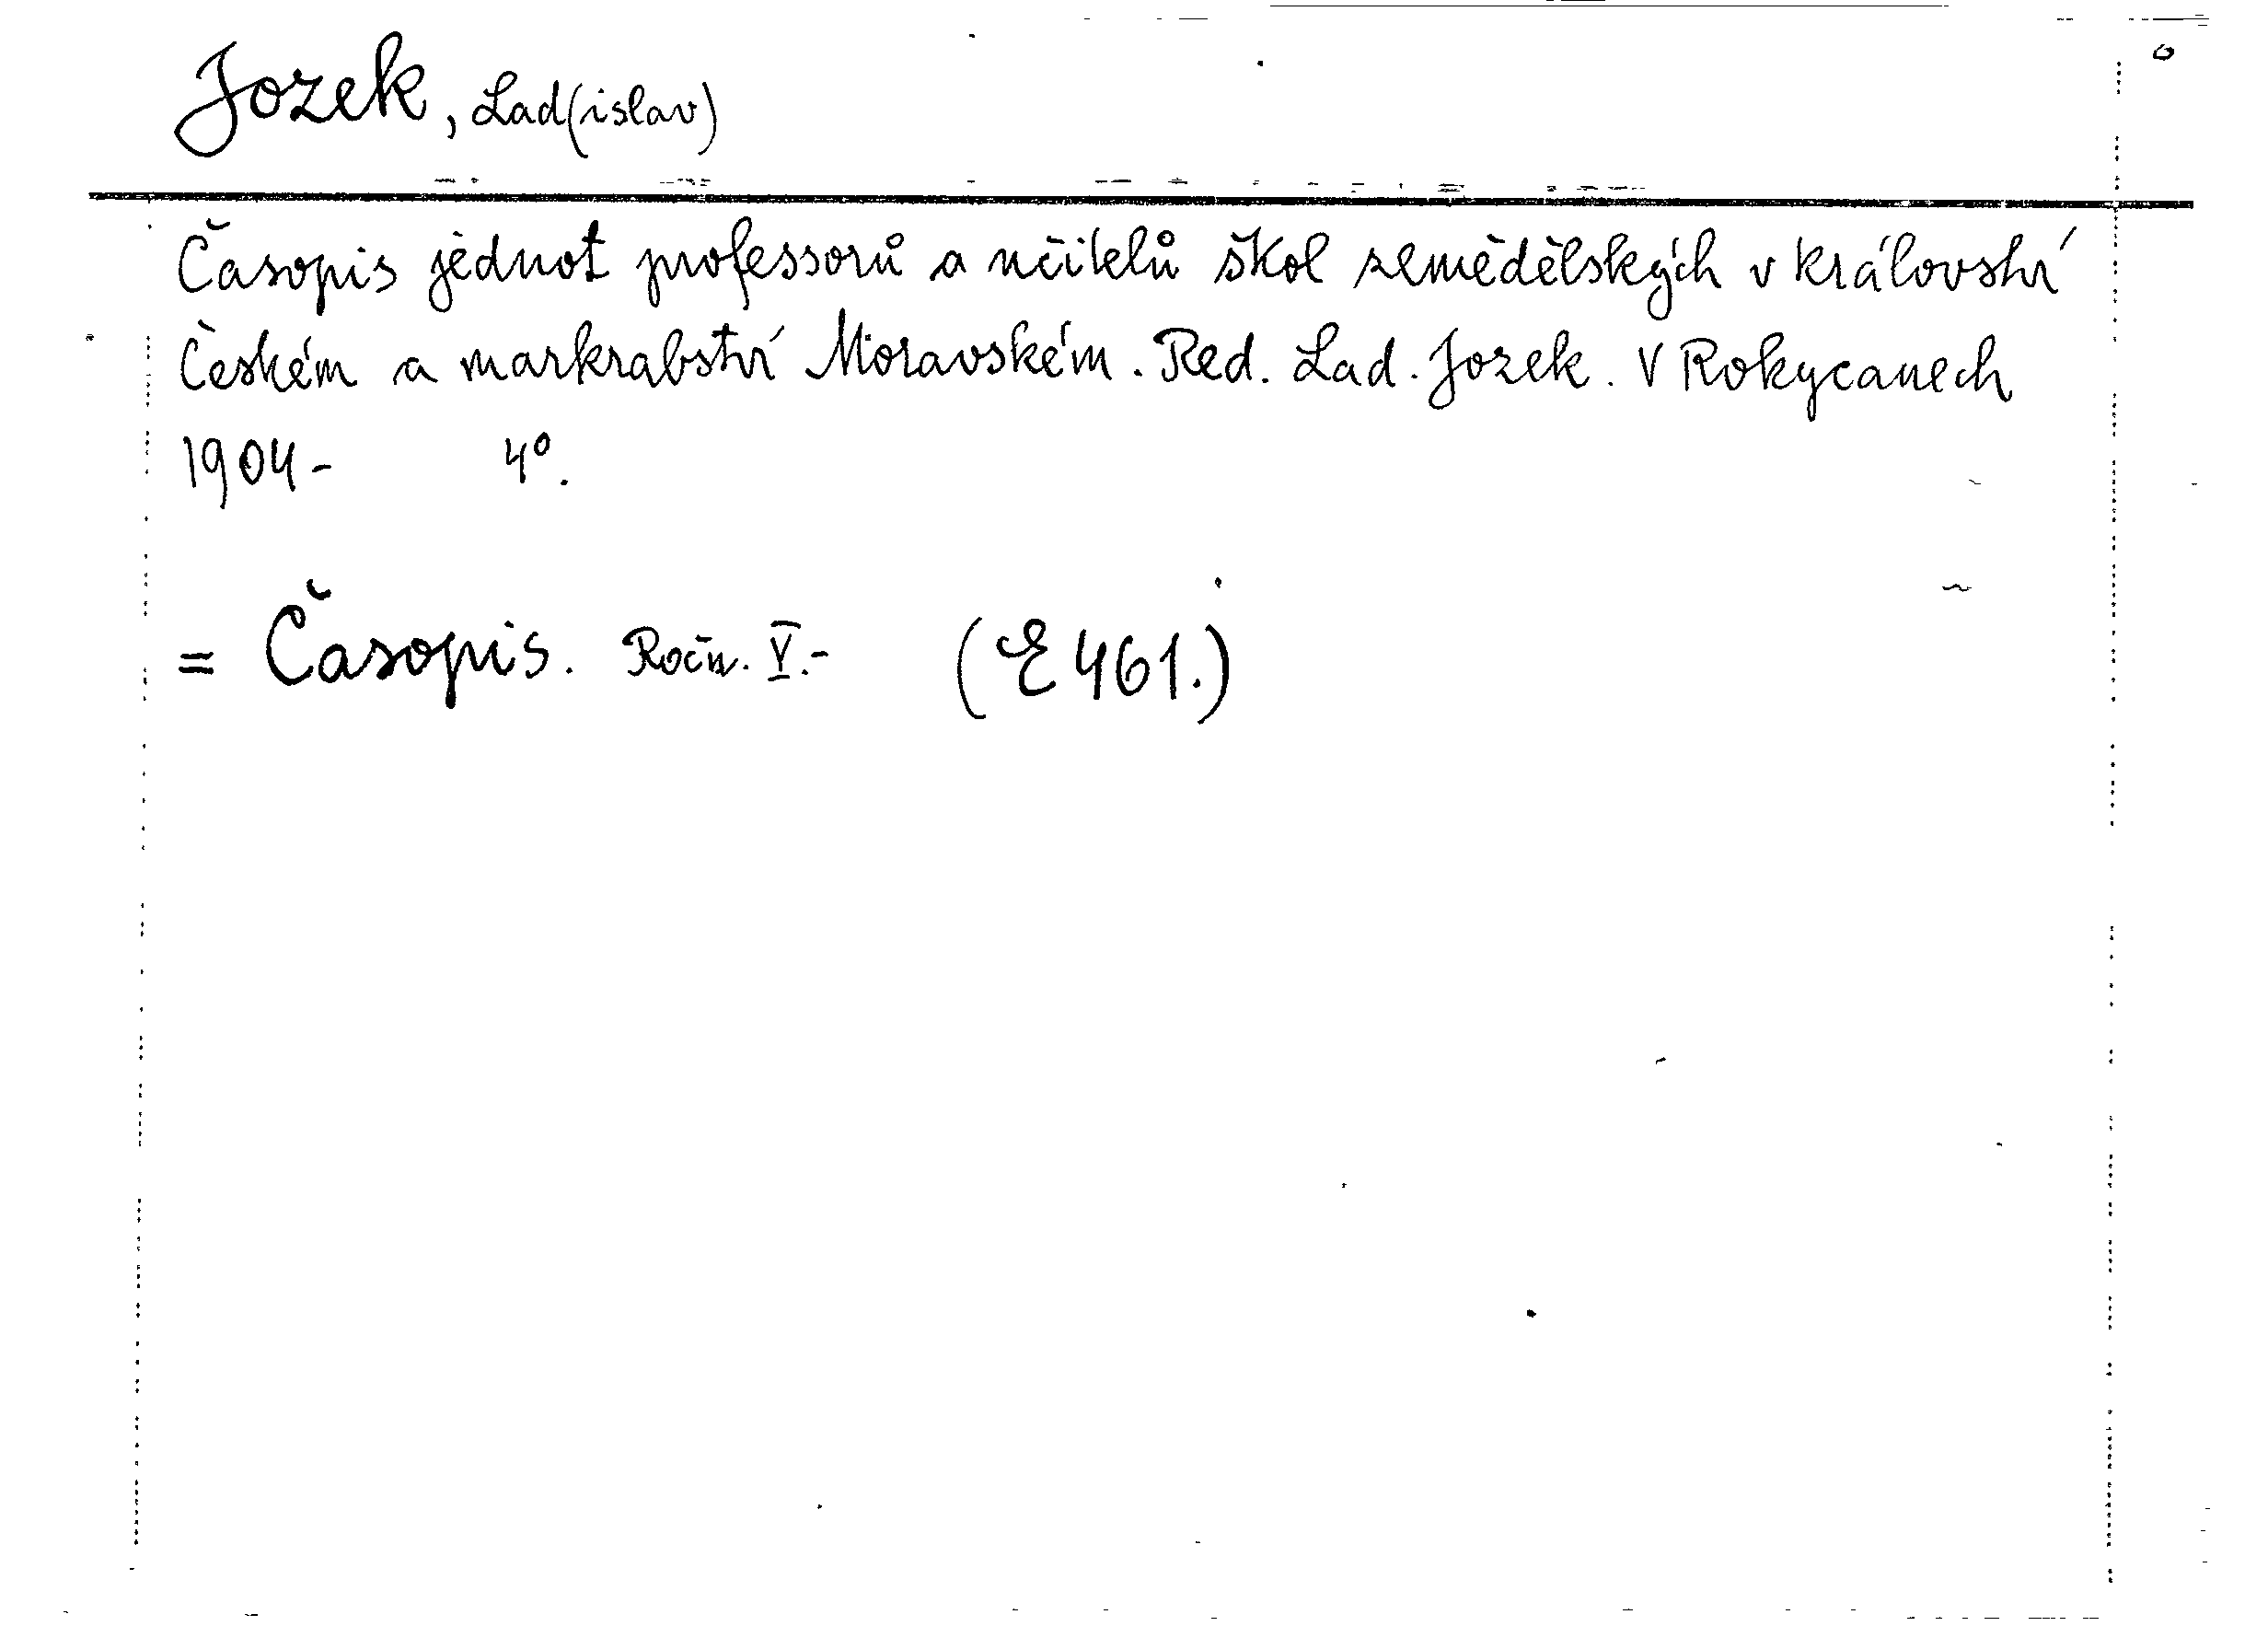 Jozek, Lad(islav)
Časopis jednot professorů a učitelů škol zemědělských v království
Českém a markrabství Moravském. Red. Lad. Jozek. V Rokycanech
1904- 4°.
= Časopis. Ročn. V.- (E 461.)